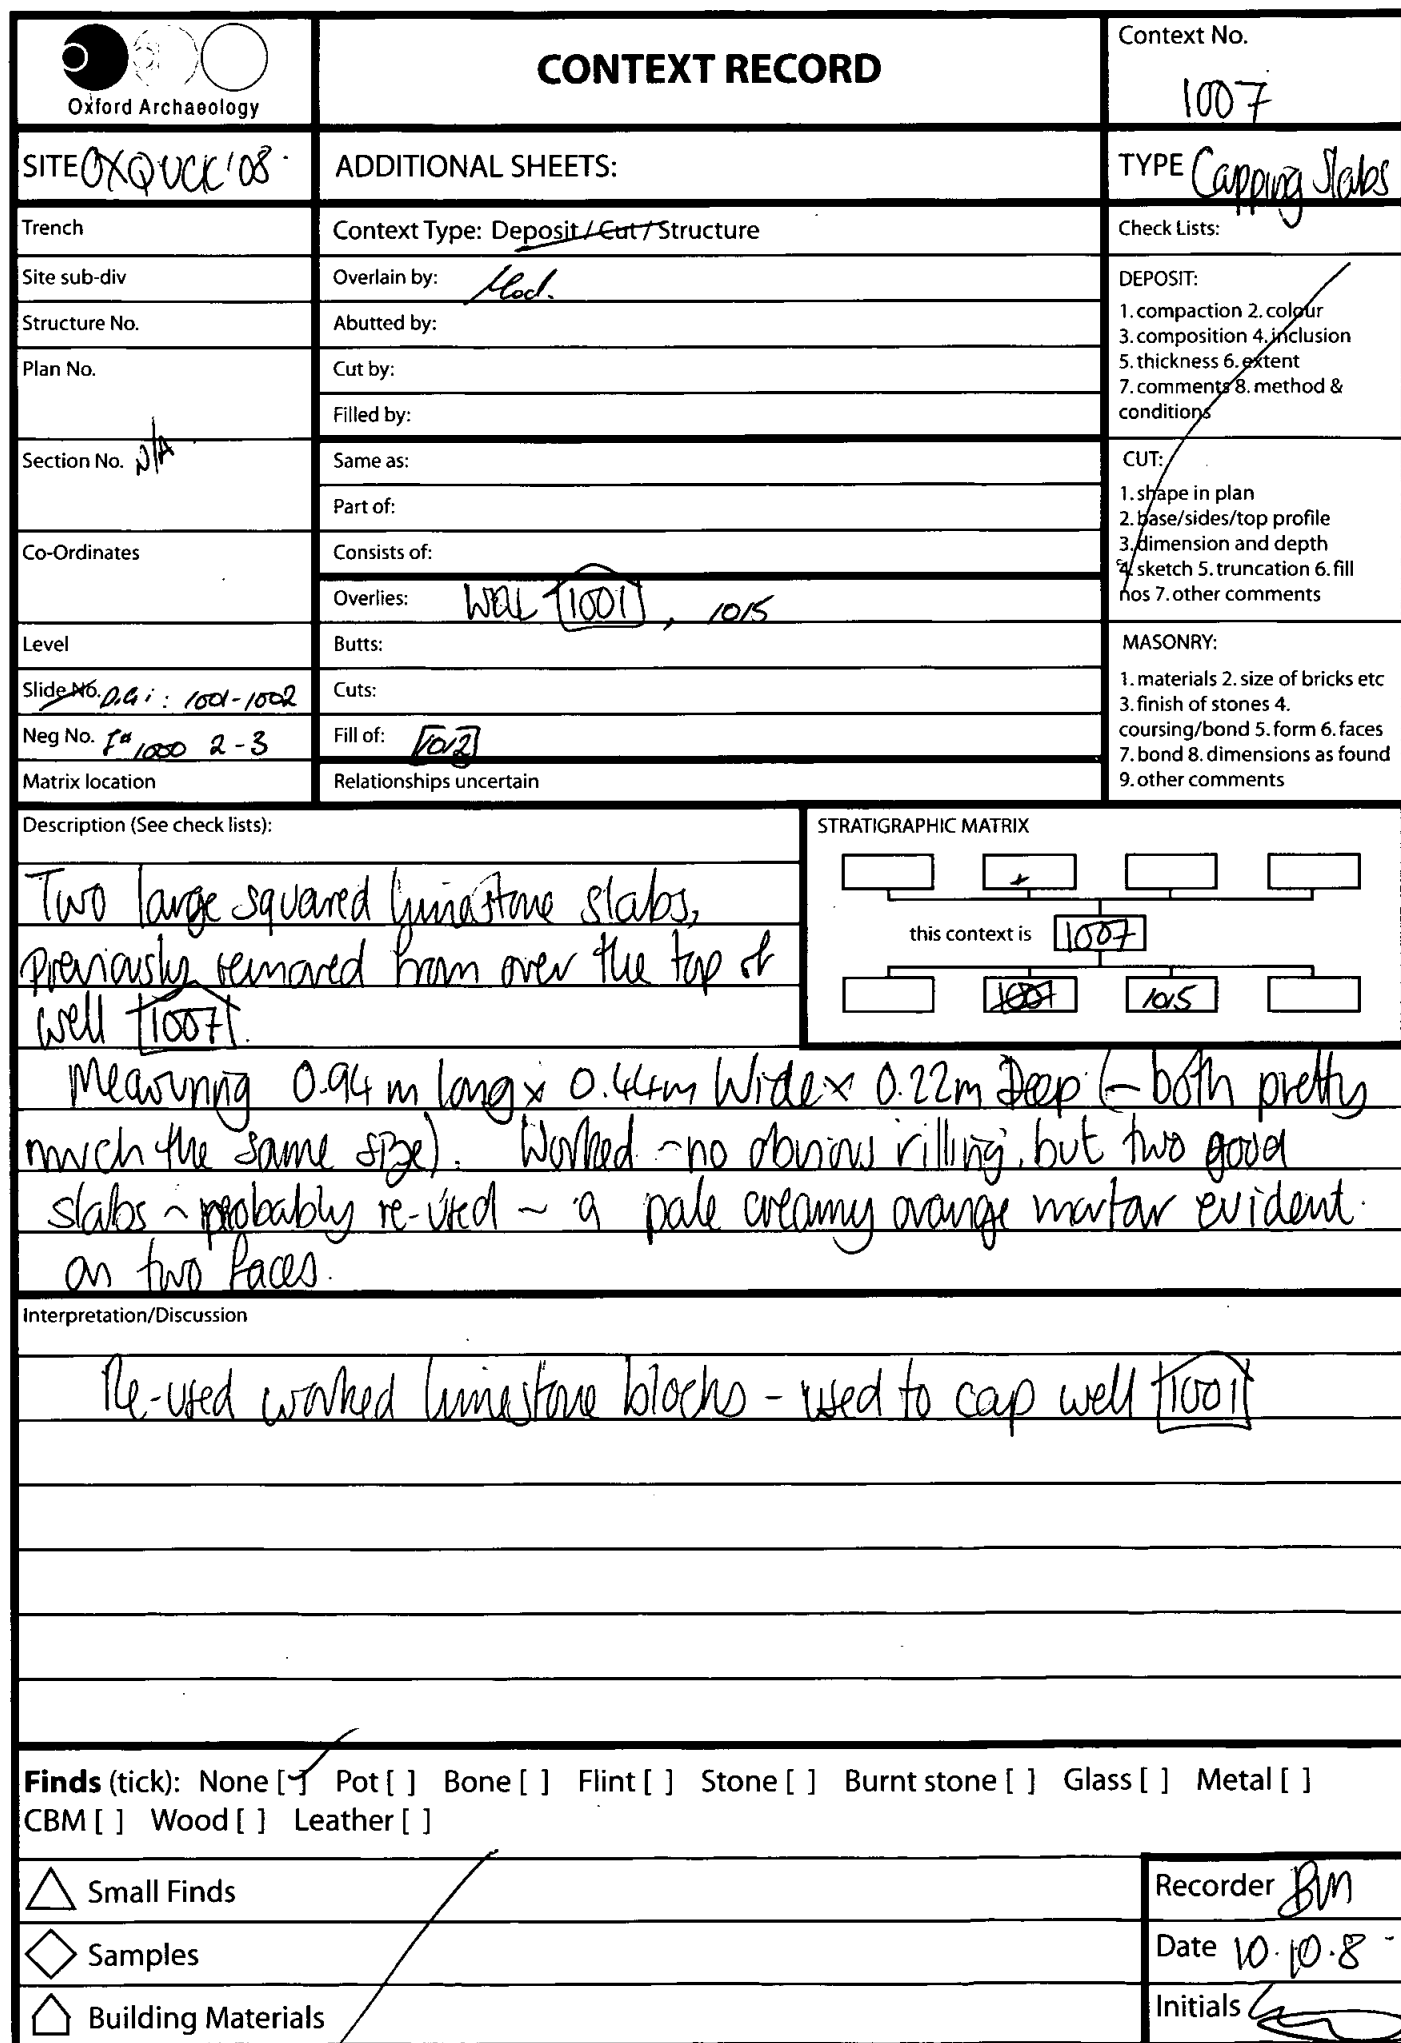 Oxford Archaeology
CONTEXT RECORD
Context No.
1007
SITE OXQUCK'08
ADDITIONAL SHEETS:
TYPE Capping Slabs
Trench
Context Type: Deposit / Cut / Structure
Check Lists:
Site sub-div
Overlain by:
Structure No.
Abutted by:
Plan No.
Cut by:
Filled by:
Section No. N/A
Same as:
Part of:
Co-Ordinates
Consists of:
Overlies: Well 1001, 1015
Level
Butts:
Slide No. Digi: 1001-1002
Cuts:
Neg No. 1000 2-3
Fill of: 1012
Matrix location
Relationships uncertain
DEPOSIT:
1. compaction 2. colour
3. composition 4. inclusion
5. thickness 6. extent
7. comments 8. method &
conditions
CUT:
1. shape in plan
2. base/sides/top profile
3. dimension and depth
4. sketch 5. truncation 6. fill
nos 7. other comments
MASONRY:
1. materials 2. size of bricks etc
3. finish of stones 4.
coursing/bond 5. form 6. faces
7. bond 8. dimensions as found
9. other comments
Description (See check lists):
Two large squared limestone slabs,
previously removed from over the top of
well 1007.
Measuring 0.94m long x 0.44m Wide x 0.22m Deep (- both pretty
much the same size). Worked - no obvious rilling, but two good
slabs - probably re-used - a pale creamy orange mortar evident
on two faces.
STRATIGRAPHIC MATRIX
+
this context is 1007
1007 1015
Interpretation/Discussion
Re-used worked limestone blocks - used to cap well 1001
Finds (tick): None [✓] Pot [ ] Bone [ ] Flint [ ] Stone [ ] Burnt stone [ ] Glass [ ] Metal [ ]
CBM [ ] Wood [ ] Leather [ ]
Small Finds
Samples
Building Materials
Recorder BM
Date 10.10.8
Initials